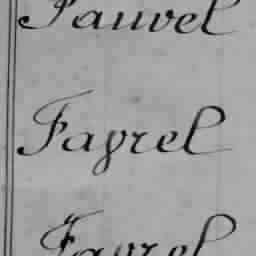 Fauvel
Fayrel
Fayrel